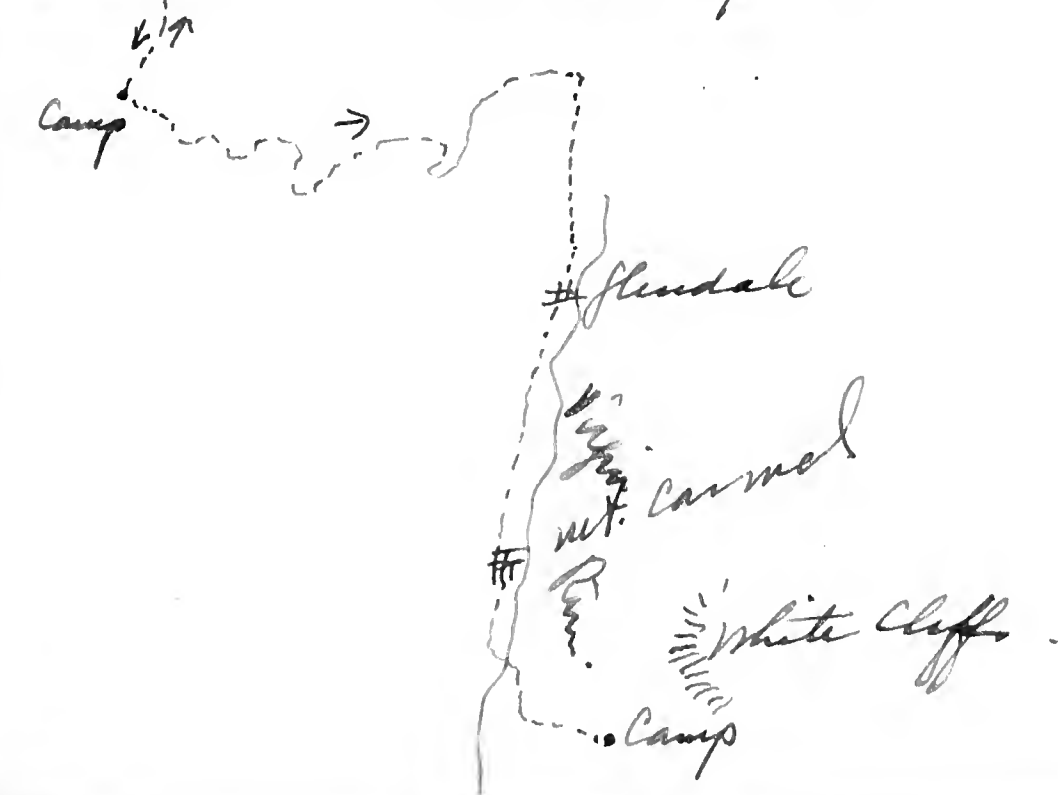 Camp
Glendale
Mt. Carmel
White Cliffs
Camp